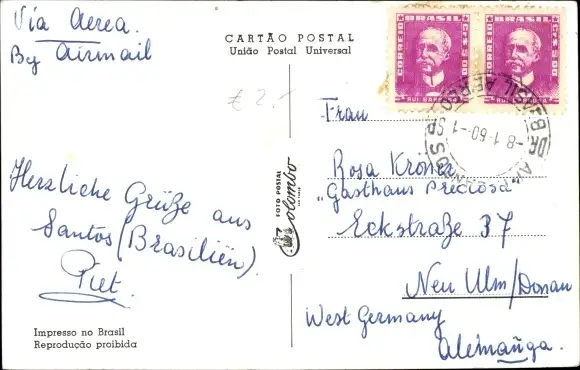 Via Aerea.
By Airmail
CARTÃO POSTAL
União Postal Universal
€ 2.-
CORREIO
BRASIL
CR$ 5,00
RUI BARBOSA
CORREIO
BRASIL
CR$ 5,00
RUI BARBOSA
8-1-60-1
SP
BRASIL AEREO
SANTOS
Herzliche Grüße aus
Santos (Brasilien).
Piet.
FOTO POSTAL
Colombo
Frau
Rosa Kroner
„Gasthaus Preciosa"
Eckstraße 37
Neu Ulm/Donau
West Germany
Alemanha.
Impresso no Brasil
Reprodução proibida